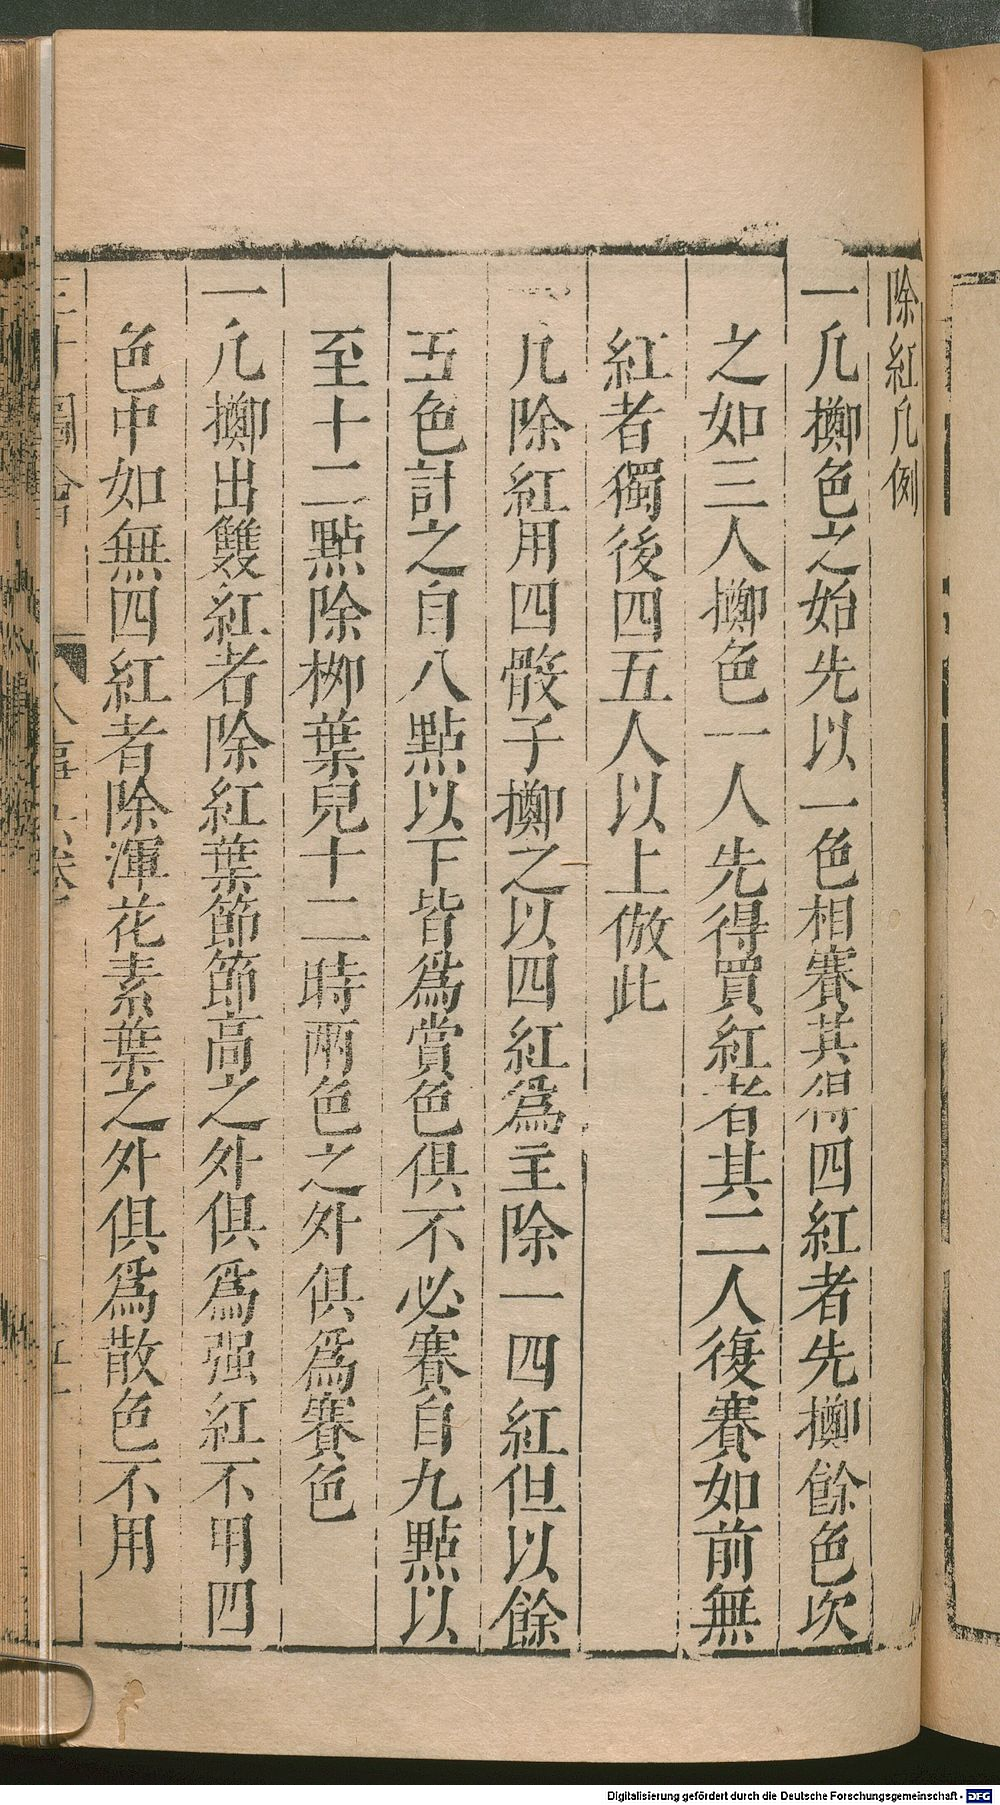 除紅凢例
一凢擲色之始先以一色相賽其得四紅者先擲餘色次
之如三人擲色一人先得買紅者其二人復賽如前無
紅者獨後四五人以上倣此
一凢除紅用四骰子擲之以四紅爲主除一四紅但以餘
五色計之自八點以下皆爲賞色俱不必賽自九點以
至十二點除柳葉兒十二時兩色之外俱爲賽色
一凢擲出雙紅者除紅葉節節高之外俱爲强紅不用四
色中如無四紅者除渾花素葉之外俱爲散色不用
三才圖會 人事 卷
Digitalisierung gefördert durch die Deutsche Forschungsgemeinschaft - DFG